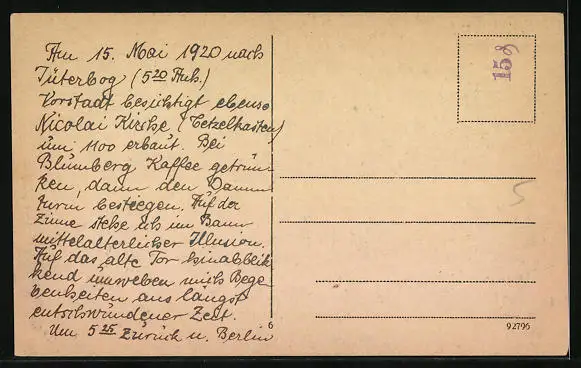 Am 15. Mai 1920 nach
Jüterbog (5 20 Anh.)
Vorstadt besichtigt ebenso
Nicolai Kirche (Tetzelkasten)
um 1100 erbaut. Bei
Blumberg Kaffee getrun-
ken, dann den Damm
turm bestiegen. Auf der
Zinne stehe ich im Bann
mittelalterlicher Illusion.
Auf das alte Tor hinabblik
kend umweben mich Bege
benheiten aus längst
entschwundener Zeit.
Um 5 25 zurück n. Berlin
15 ₰
5
6
92796